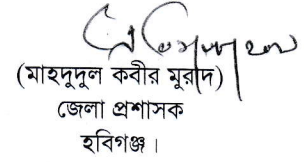 (মাহদুদুল কবীর মুরাদ)
জেলা প্রশাসক
হবিগঞ্জ।